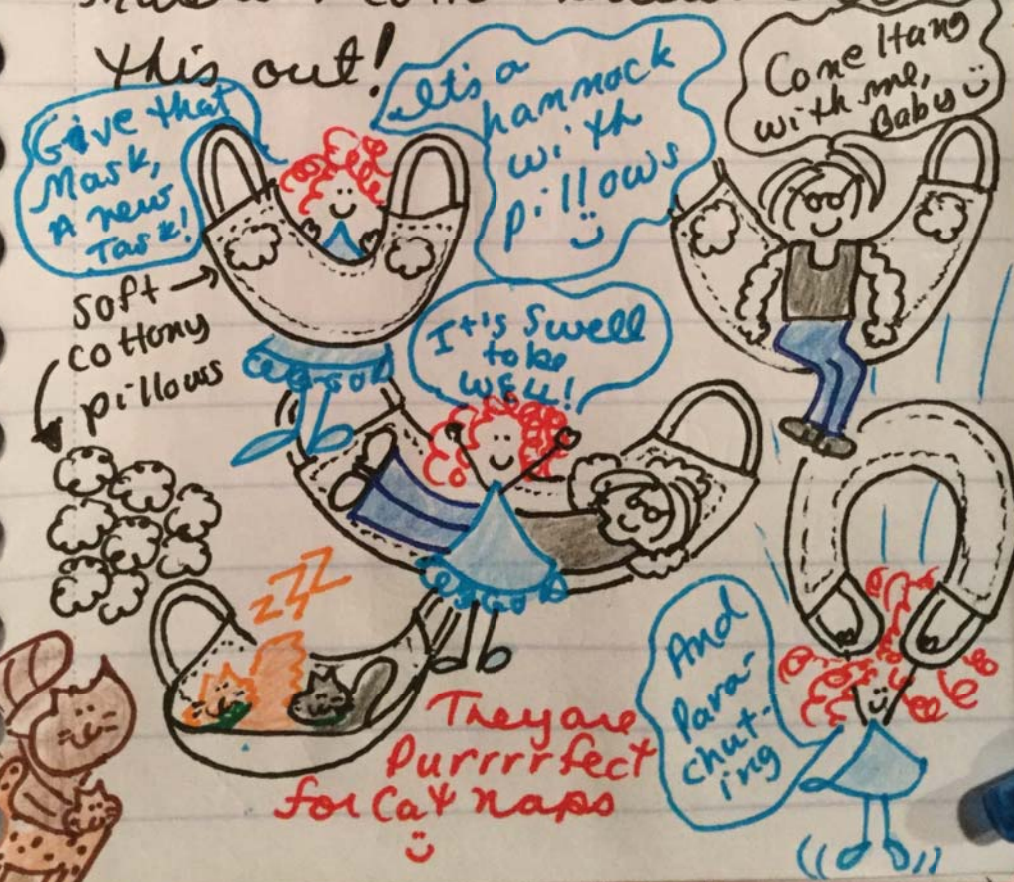 this out!
Give that
Mask,
A new
Task!
It's a
hammock
with
pillows
Come Hang
with me,
Baby
soft
cottony
pillows
It's swell
to be
well!
ZZZ
They are
Purrrrfect
for Cat naps
And
Para-
chut-
ing